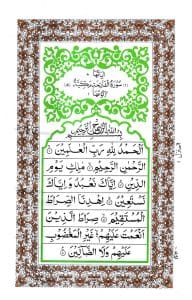 اٰيَاتُهَا
سُوْرَةُ الْفَاتِحَةِ مَكِّيَّةٌ
رُكُوْعُهَا
بِسْمِ اللّٰهِ الرَّحْمٰنِ الرَّحِيْمِ
اَلْحَمْدُ لِلّٰهِ رَبِّ الْعٰلَمِيْنَ
الرَّحْمٰنِ الرَّحِيْمِ مٰلِكِ يَوْمِ
الدِّيْنِ اِيَّاكَ نَعْبُدُ وَاِيَّاكَ
نَسْتَعِيْنُ اِهْدِنَا الصِّرَاطَ
الْمُسْتَقِيْمَ صِرَاطَ الَّذِيْنَ
اَنْعَمْتَ عَلَيْهِمْ غَيْرِ الْمَغْضُوْبِ
عَلَيْهِمْ وَلَا الضَّآلِّيْنَ